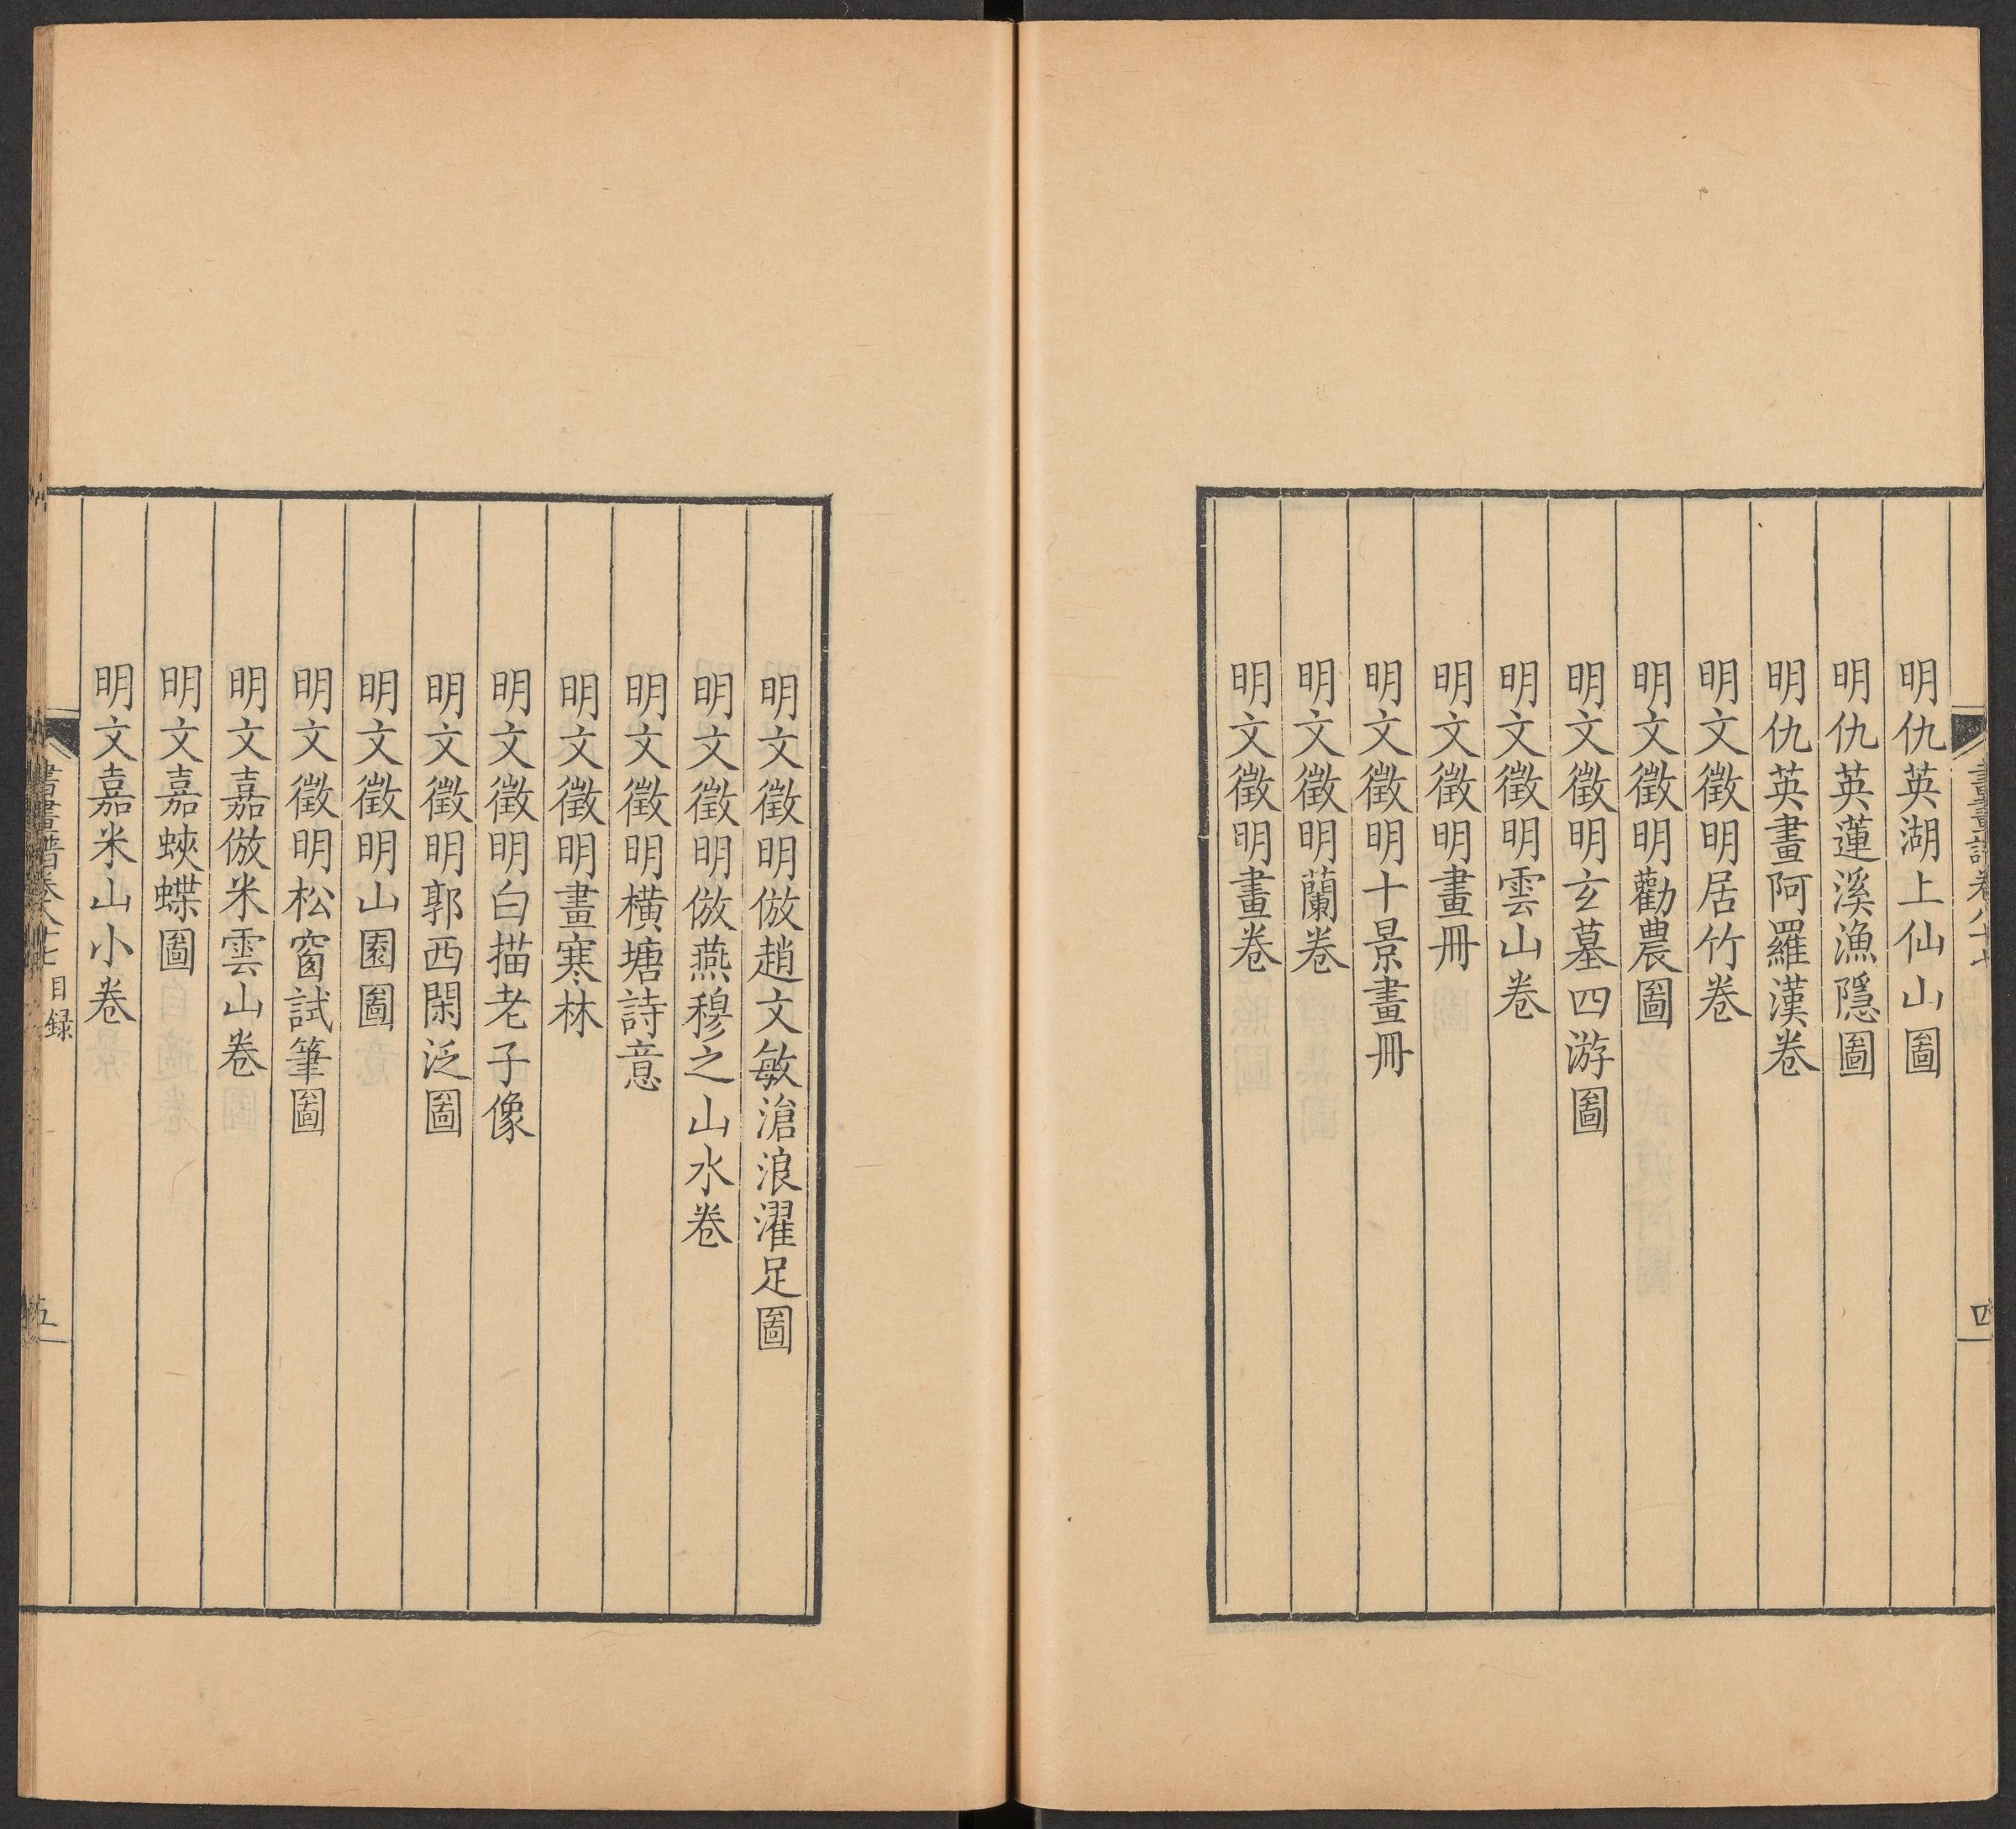 明仇英湖上仙山圖
明仇英蓮溪漁隱圖
明仇英畫阿羅漢卷
明文徵明居竹卷
明文徵明勸農圖
明文徵明玄墓四游圖
明文徵明雲山卷
明文徵明畫冊
明文徵明十景畫冊
明文徵明蘭卷
明文徵明畫卷
明文徵明倣趙文敏滄浪濯足圖
明文徵明倣燕穆之山水卷
明文徵明橫塘詩意
明文徵明畫寒林
明文徵明白描老子像
明文徵明郭西閑泛圖
明文徵明山園圖
明文徵明松窗試筆圖
明文嘉倣米雲山卷
明文嘉蛺蝶圖
明文嘉米山小卷
書畫譜卷八十七 目録 五